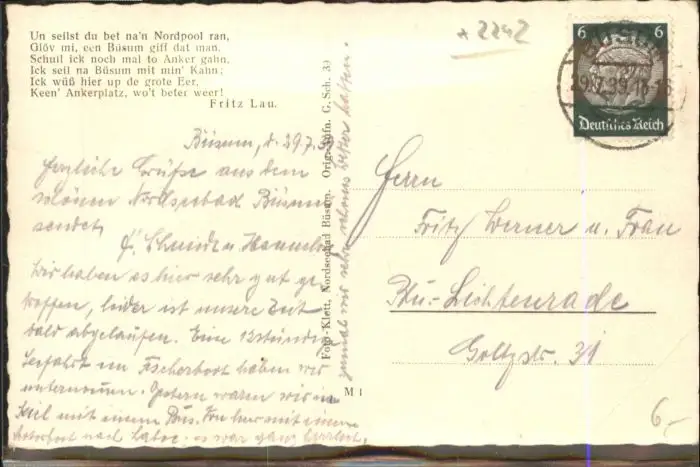 Un seilst du bet na'n Nordpool ran,
Glöv mi, een Büsum giff dat man.
Schull ick noch mal to Anker gahn,
Ick seil na Büsum mit min' Kahn;
Ick wüß hier up de grote Eer,
Keen' Ankerplatz, wo't beter weer!
Fritz Lau.
2242
6 6
29.7.39.18-
Deutsches Reich
Büsum, d. 29.7.39
Herzliche Grüße aus dem
schönen Nordseebad Büsum
sendet
Wir haben es hier sehr gut ge-
troffen, leider ist unsere Zeit
bald abgelaufen. Eine 12stündige
Seefahrt im Fischerboot haben wir
unternommen. Gestern waren wir in
Kiel mit einem Bus. Von hier mit einem
nach Laboe. es war ganz herrlich,
zumal wir sehr schönes Wetter hatten.
Foto-Klett, Nordseebad Büsum. Orig.-Aufn. G. Sch. 39
M 1
Herrn
Fritz Werner u. Frau
Bln.-Lichtenrade
Goltzstr. 31
6.-